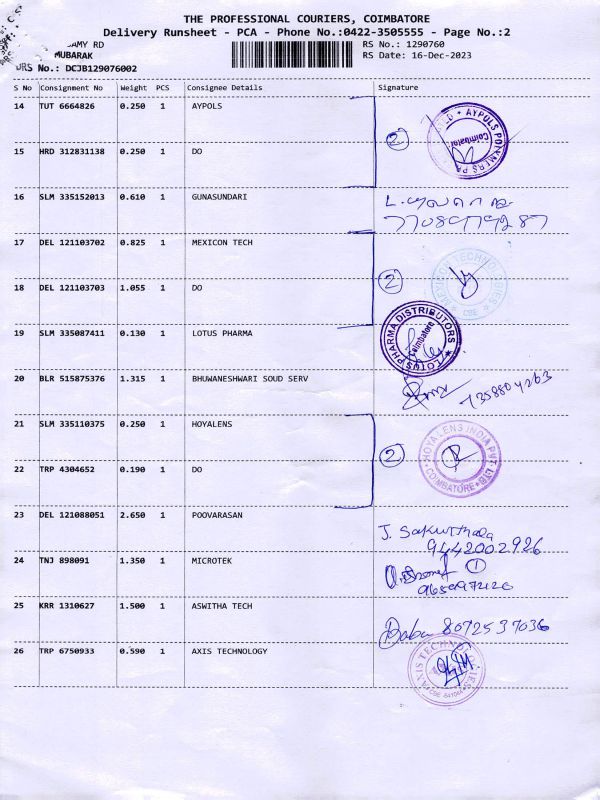 THE PROFESSIONAL COURIERS, COIMBATORE
Delivery Runsheet - PCA - Phone No.:0422-3505555 - Page No.:2
AMY RD RS No.: 1290760
MUBARAK RS Date: 16-Dec-2023
DRS No.: DCJB129076002
S No Consignment No Weight PCS Consignee Details Signature
14 TUT 6664826 0.250 1 AYPOLS
2 AYPOLS POLYMERS Coimbatore
15 HRD 312831138 0.250 1 DO
16 SLM 335152013 0.610 1 GUNASUNDARI
17 DEL 121103702 0.825 1 MEXICON TECH
2 MEXICON TECHNOLOGIES CBE
18 DEL 121103703 1.055 1 DO
19 SLM 335087411 0.130 1 LOTUS PHARMA
LOTUS PHARMA DISTRIBUTORS Coimbatore
20 BLR 515875376 1.315 1 BHUWANESHWARI SOUD SERV
7358804263
21 SLM 335110375 0.250 1 HOYALENS
2 HOYALENS INDIA PVT. LTD COIMBATORE
22 TRP 4304652 0.190 1 DO
23 DEL 121088051 2.650 1 POOVARASAN
J. Sakunthala
9442002926
24 TNJ 898091 1.350 1 MICROTEK
1
25 KRR 1310627 1.500 1 ASWITHA TECH
Babu 8072537036
26 TRP 6750933 0.590 1 AXIS TECHNOLOGY
AXIS TECHNOLOGIES